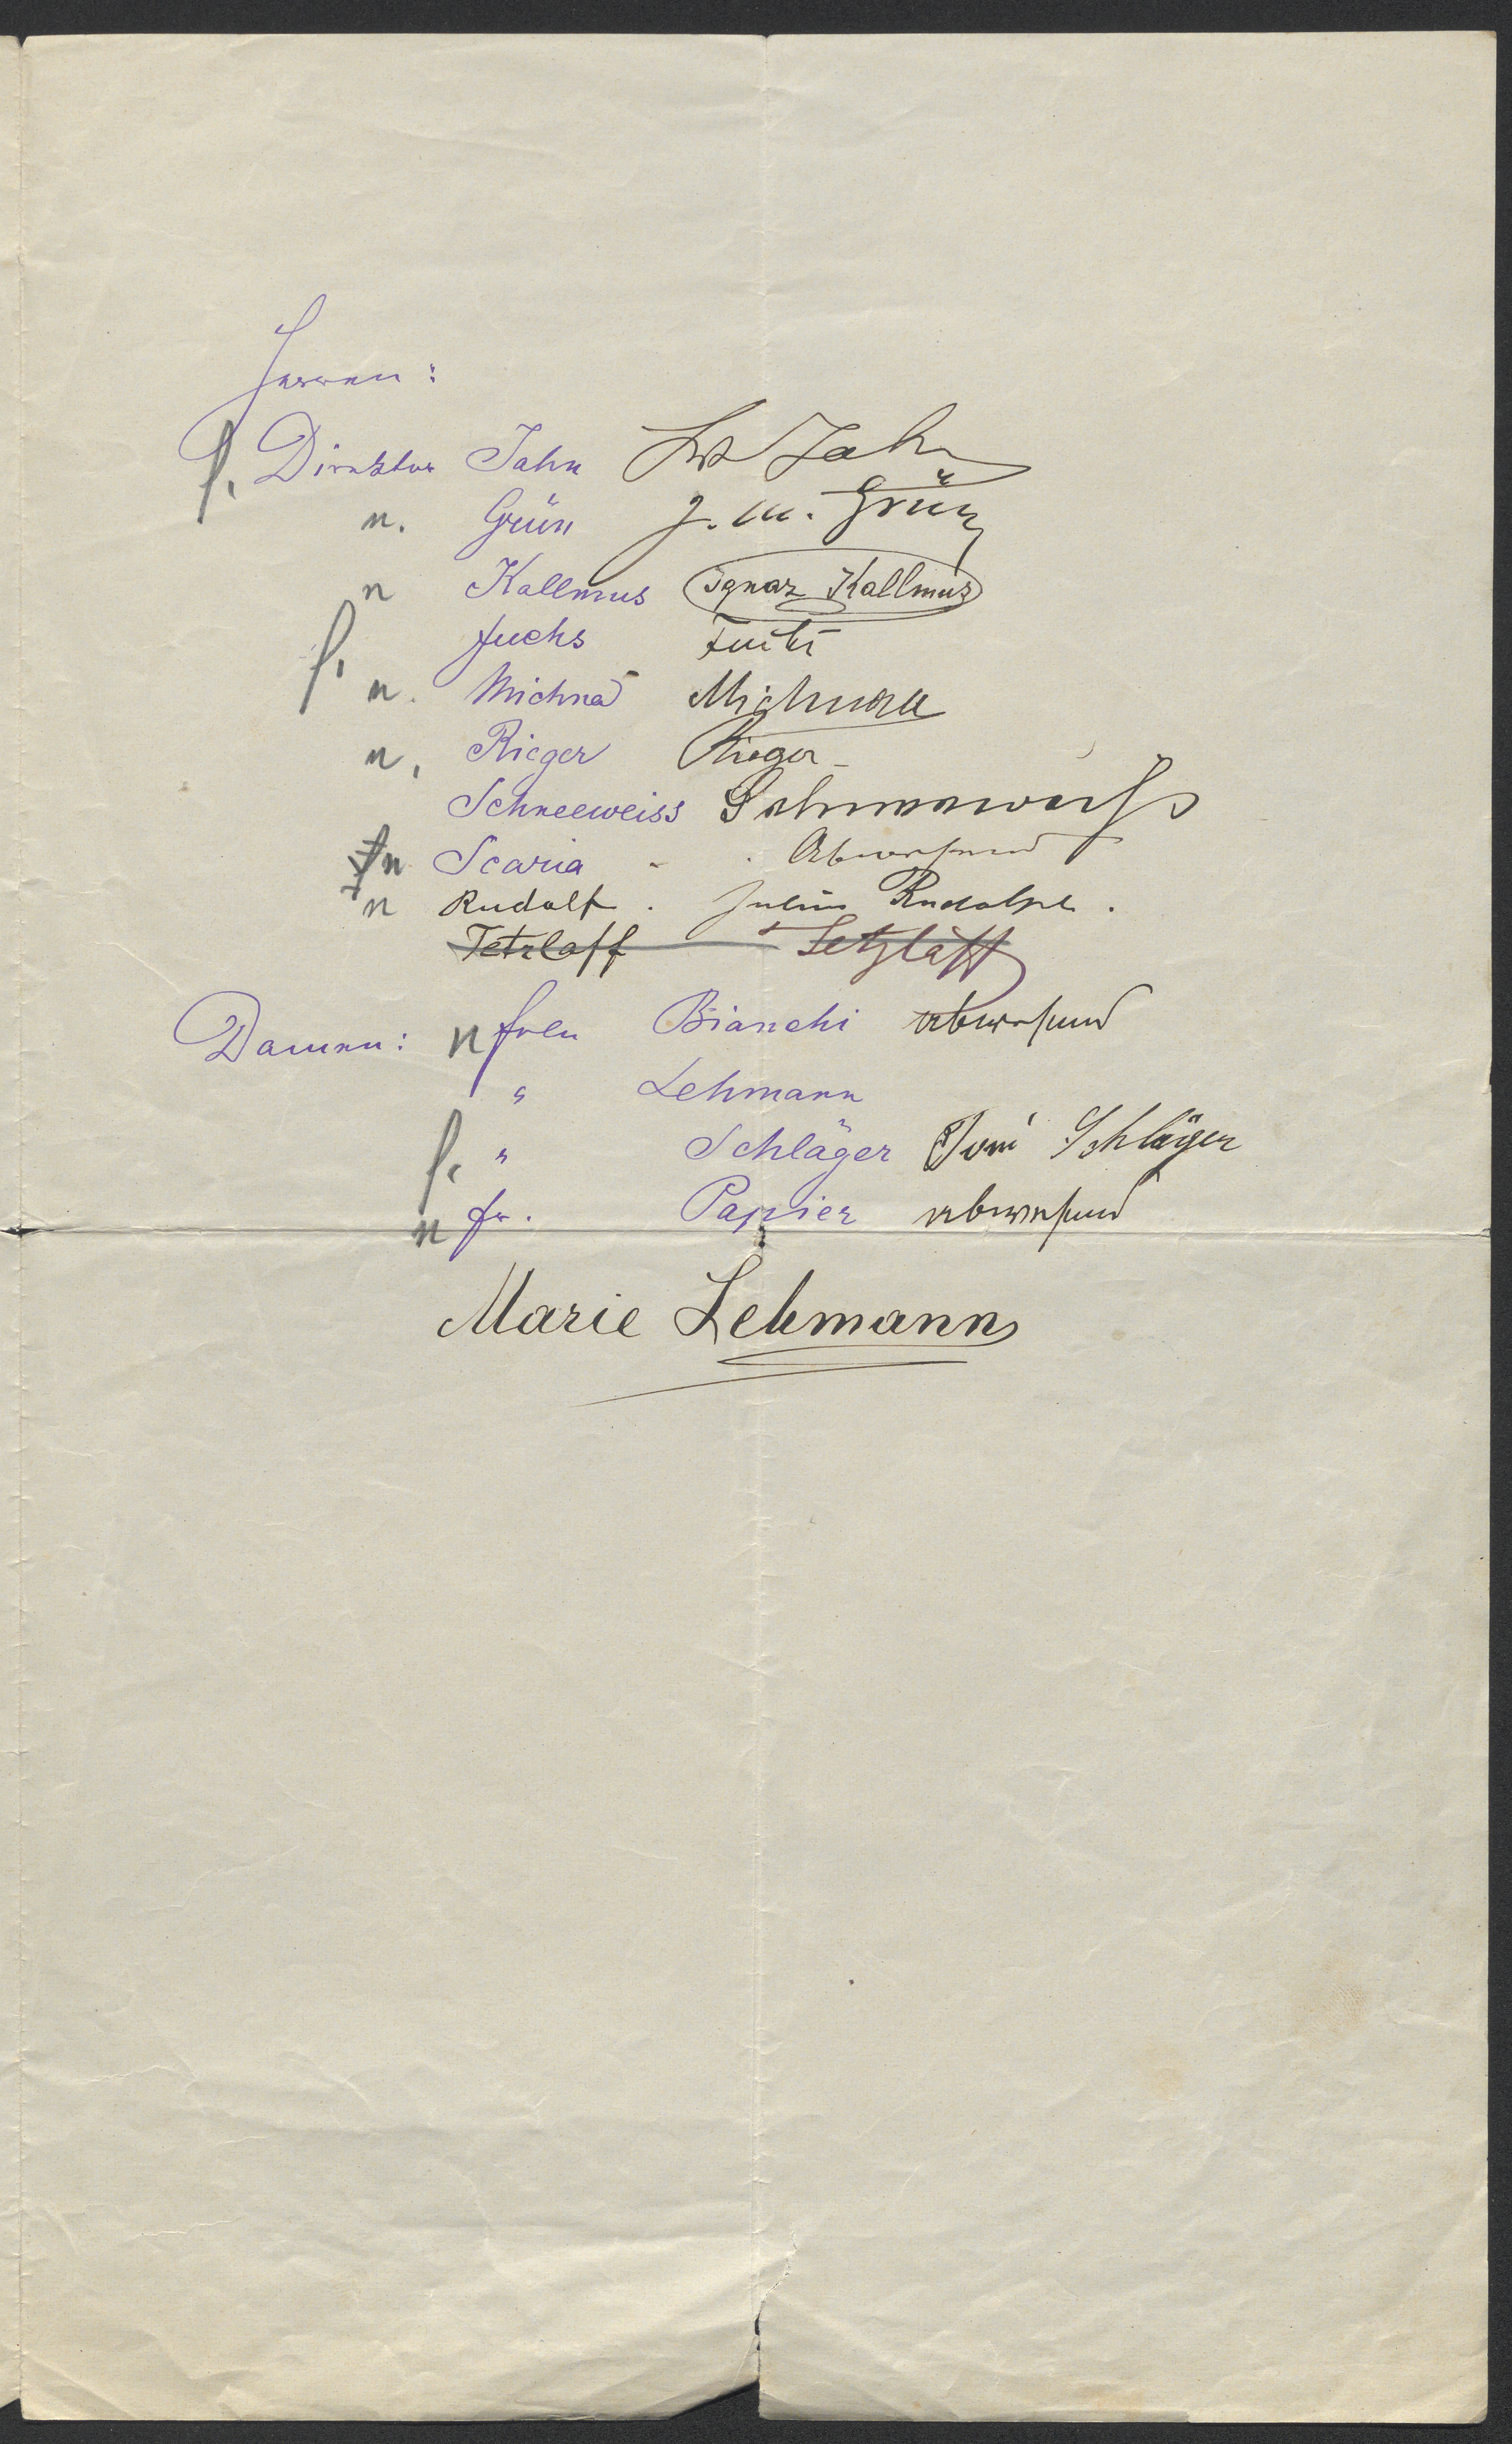 Herren:
f. Direktor Jahn W Jahn
n. Grün J. M. Grün
n Kallmus Ignaz Kallmus
f. Fuchs Fuchs
n. Michna Michna
n. Rieger Rieger
Schneeweiss Schneeweiss
n Scaria - Abwesend
n Rudolf. Julius Rudolph.
Tetzlaff Tetzlaff
Damen: n Frln Bianchi abwesend
" Lehmann
f. " Schläger Toni Schläger
n Fr. Papier abwesend
Marie Lehmann